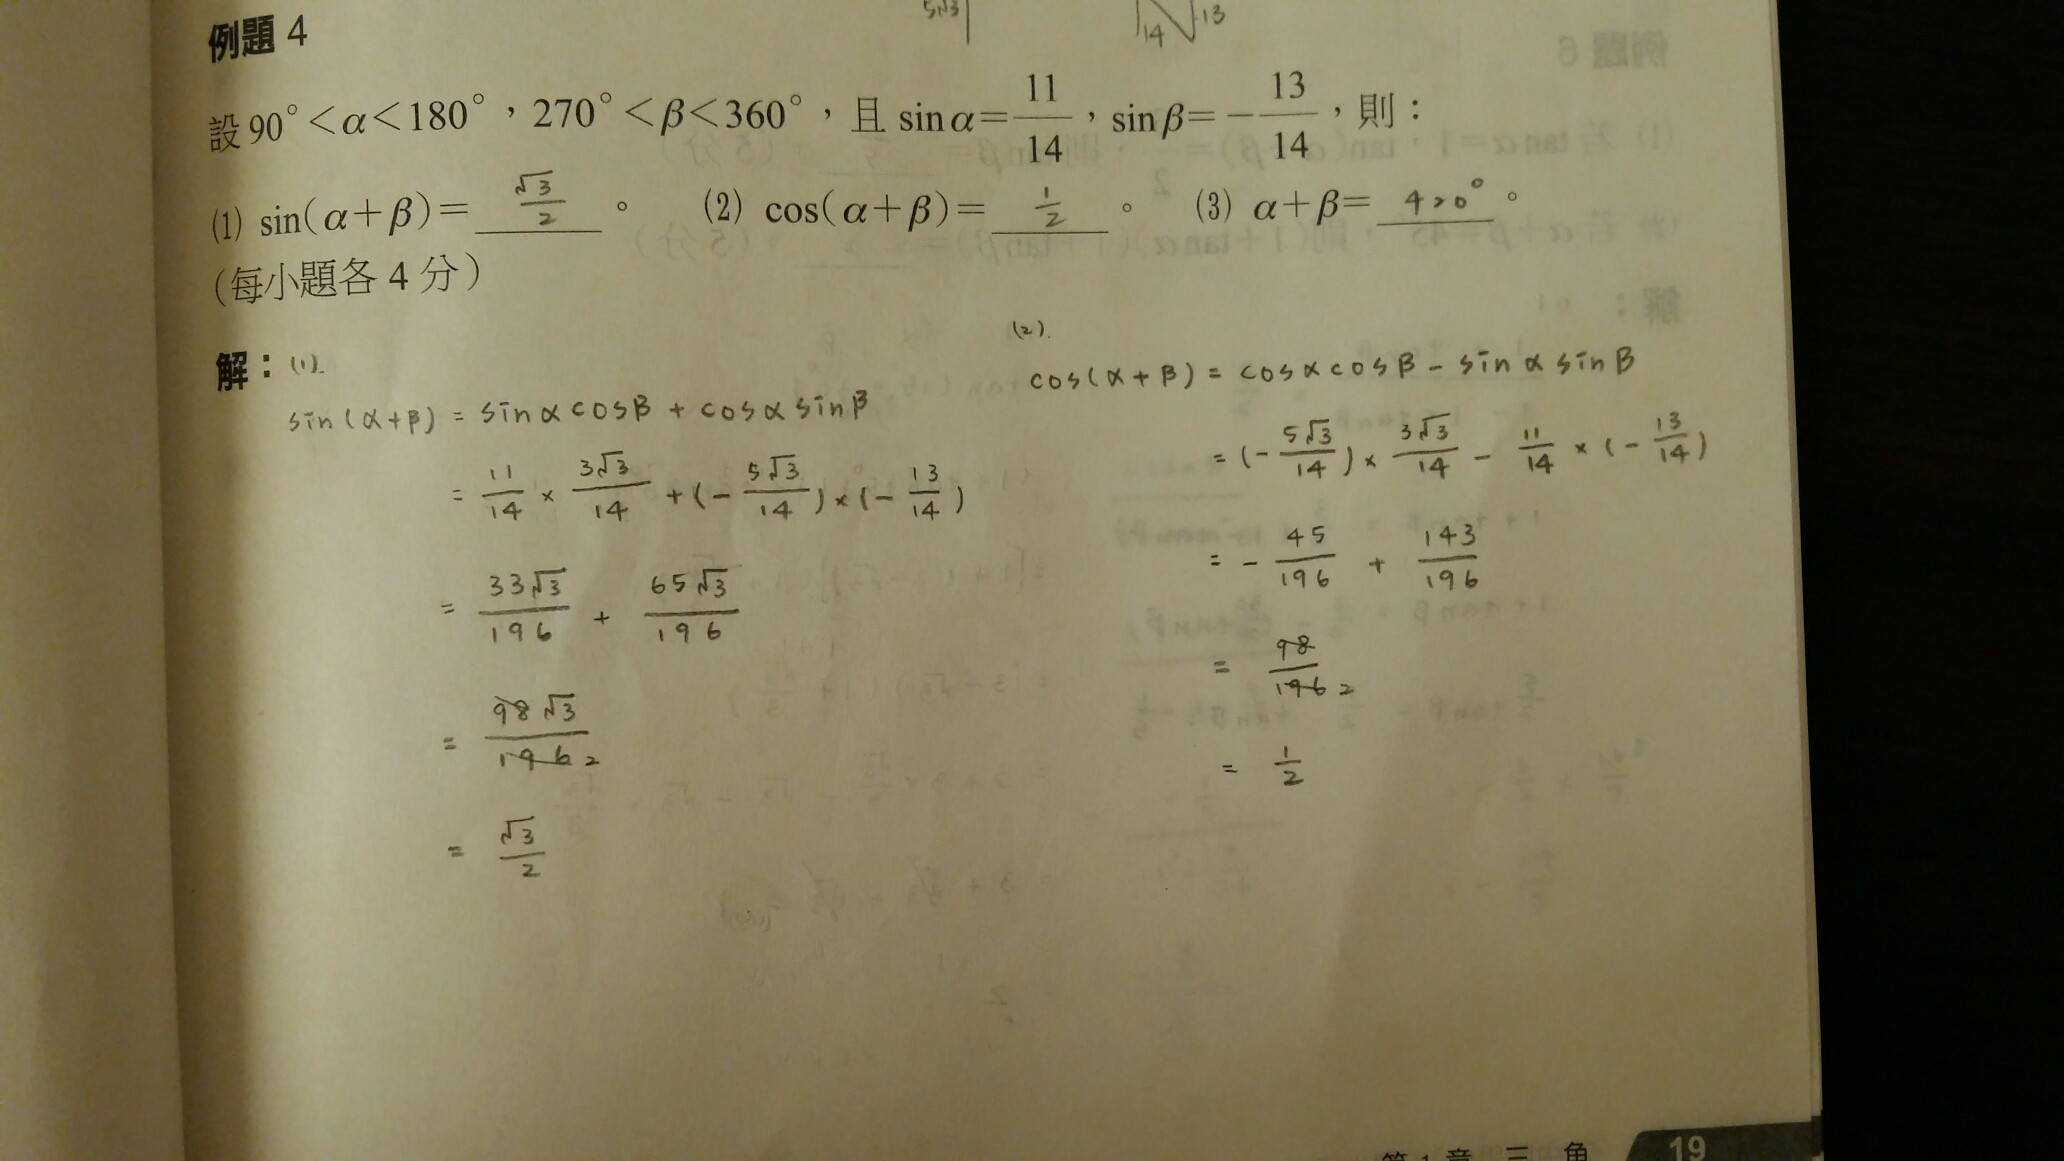 5√3
14 13
例題 4
設 90°<α<180°，270°<β<360°，且 sinα=11/14，sinβ=-13/14，則：
(1) sin(α+β)= √3/2 。 (2) cos(α+β)= 1/2 。 (3) α+β= 420° 。
(每小題各 4 分)
解：(1).
sin(α+β) = sinα cosβ + cosα sinβ
= 11/14 × 3√3/14 + (-5√3/14) × (-13/14)
= 33√3/196 + 65√3/196
= 98√3/196 2
= √3/2
(2).
cos(α+β) = cosα cosβ - sinα sinβ
= (-5√3/14) × 3√3/14 - 11/14 × (-13/14)
= -45/196 + 143/196
= 98/196 2
= 1/2
第 1 章 三 角 19